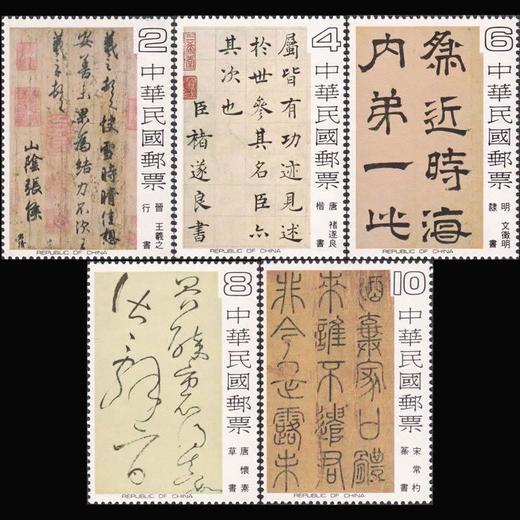 2
中華民國郵票
晉 王羲之
行書
羲之頓首快雪時晴佳想
安善未果為結力不次王
羲之頓首
山陰張侯
REPUBLIC OF CHINA
4
中華民國郵票
唐 褚遂良
楷書
屬皆有功迹見述
於世參其名臣亦
其次也
臣褚遂良書
REPUBLIC OF CHINA
6
中華民國郵票
明 文徵明
隸書
為近時海
內弟一此
REPUBLIC OF CHINA
8
中華民國郵票
唐 懷素
草書
REPUBLIC OF CHINA
10
中華民國郵票
宋 常杓
篆書
非今是露未
REPUBLIC OF CHINA